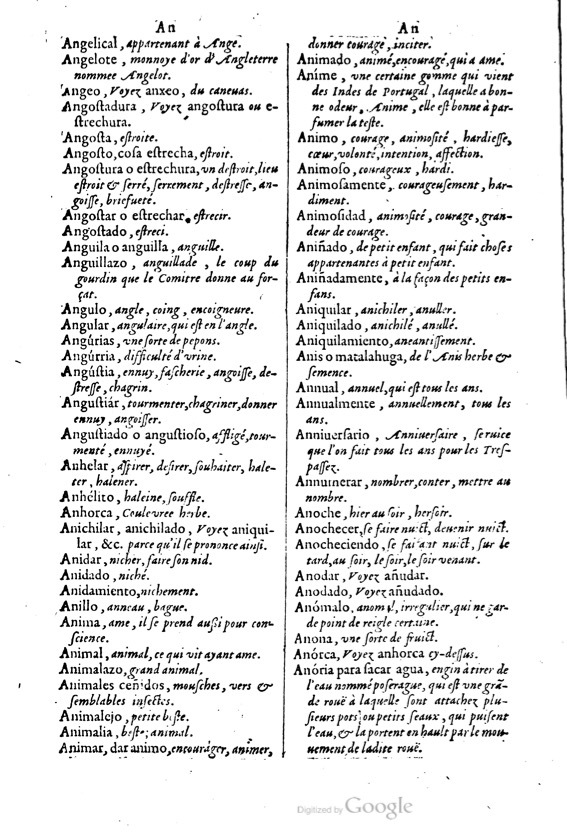 An
Angelical, appartenant à Ange.
Angelote, monnoye d'or d'Angleterre
nommee Angelot.
Angeo, Voyez anxeo, du caneuas.
Angostadura, Voyez angostura ou e-
strechura.
Angosta, estroite.
Angosto, cosa estrecha, estroit.
Angostura o estrechura, vn destroit, lieu
estroit & serré, serrement, destresse, an-
goisse, briefueté.
Angostar o estrechar, estrecir.
Angostado, estreci.
Anguila o anguilla, anguille.
Anguillazo, anguillade, le coup du
gourdin que le Comitre donne au for-
çat.
Angulo, angle, coing, encoigneure.
Angular, angulaire, qui est en l'angle.
Angúrias, vne sorte de pepons.
Angúrria, difficulté d'vrine.
Angústia, ennuy, fascherie, angoisse, de-
stresse, chagrin.
Angustiár, tourmenter, chagriner, donner
ennuy, angoisser.
Angustiado o angustioso, affligé, tour-
menté, ennuyé.
Anhelar, aspirer, desirer, souhaiter, hale-
ter, halener.
Anhélito, haleine, souffle.
Anhorca, Couleuree herbe.
Anichilar, anichilado, Voyez aniqui-
lar, &c. parce qu'il se prononce ainsi.
Anidar, nicher, faire son nid.
Anidado, niché.
Anidamiento, nichement.
Anillo, anneau, bague.
Anima, ame, il se prend aussi pour con-
science.
Animal, animal, ce qui vit ayant ame.
Animalazo, grand animal.
Animales ceñidos, mousches, vers &
semblables insectes.
Animalejo, petite beste.
Animalia, beste, animal.
Animar, dar animo, encourager, animer,
An
donner courage, inciter.
Animado, animé, encouragé, qui a ame.
Aníme, vne certaine gomme qui vient
des Indes de Portugal, laquelle a bon-
ne odeur, Anime, elle est bonne à par-
fumer la teste.
Animo, courage, animosité, hardiesse,
cœur, volonté, intention, affection.
Animoso, courageux, hardi.
Animosamente, courageusement, har-
diment.
Animosidad, animosité, courage, gran-
deur de courage.
Aniñado, de petit enfant, qui fait choses
appartenantes à petit enfant.
Aniñadamente, à la façon des petits en-
fans.
Aniquilar, anichiler, anuller.
Aniquilado, anichilé, anullé.
Aniquilamiento, aneantissement.
Anis o matalahuga, de l'Anis herbe &
semence.
Annual, annuel, qui est tous les ans.
Annualmente, annuellement, tous les
ans.
Anniuersario, Anniuersaire, seruice
que l'on fait tous les ans pour les Tres-
passez.
Annumerar, nombrer, conter, mettre au
nombre.
Anoche, hier au soir, hersoir.
Anochecer, se faire nuict, deuenir nuict.
Anocheciendo, se faisant nuict, sur le
tard, au soir, le soir, le soir venant.
Anodar, Voyez añudar.
Anodado, Voyez añudado.
Anómalo, anomal, irregulier, qui ne gar-
de point de reigle certaine.
Anona, vne sorte de fruict.
Anórca, Voyez anhorca cy-dessus.
Anória para sacar agua, engin à tirer de
l'eau nommé poserague, qui est vne grã-
de rouë à laquelle sont attachez plu-
sieurs pots ou petits seaux, qui puisent
l'eau, & la portent en hault par le mou-
uement de ladite rouë.
Digitized by Google